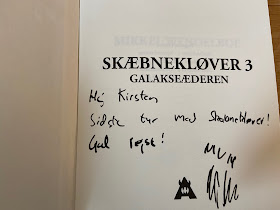 SKÆBNEKLØVER 3
GALAKSEÆDEREN
Hej Kirsten
Sidste tur med Skæbnekløver!
God rejse!
MVH